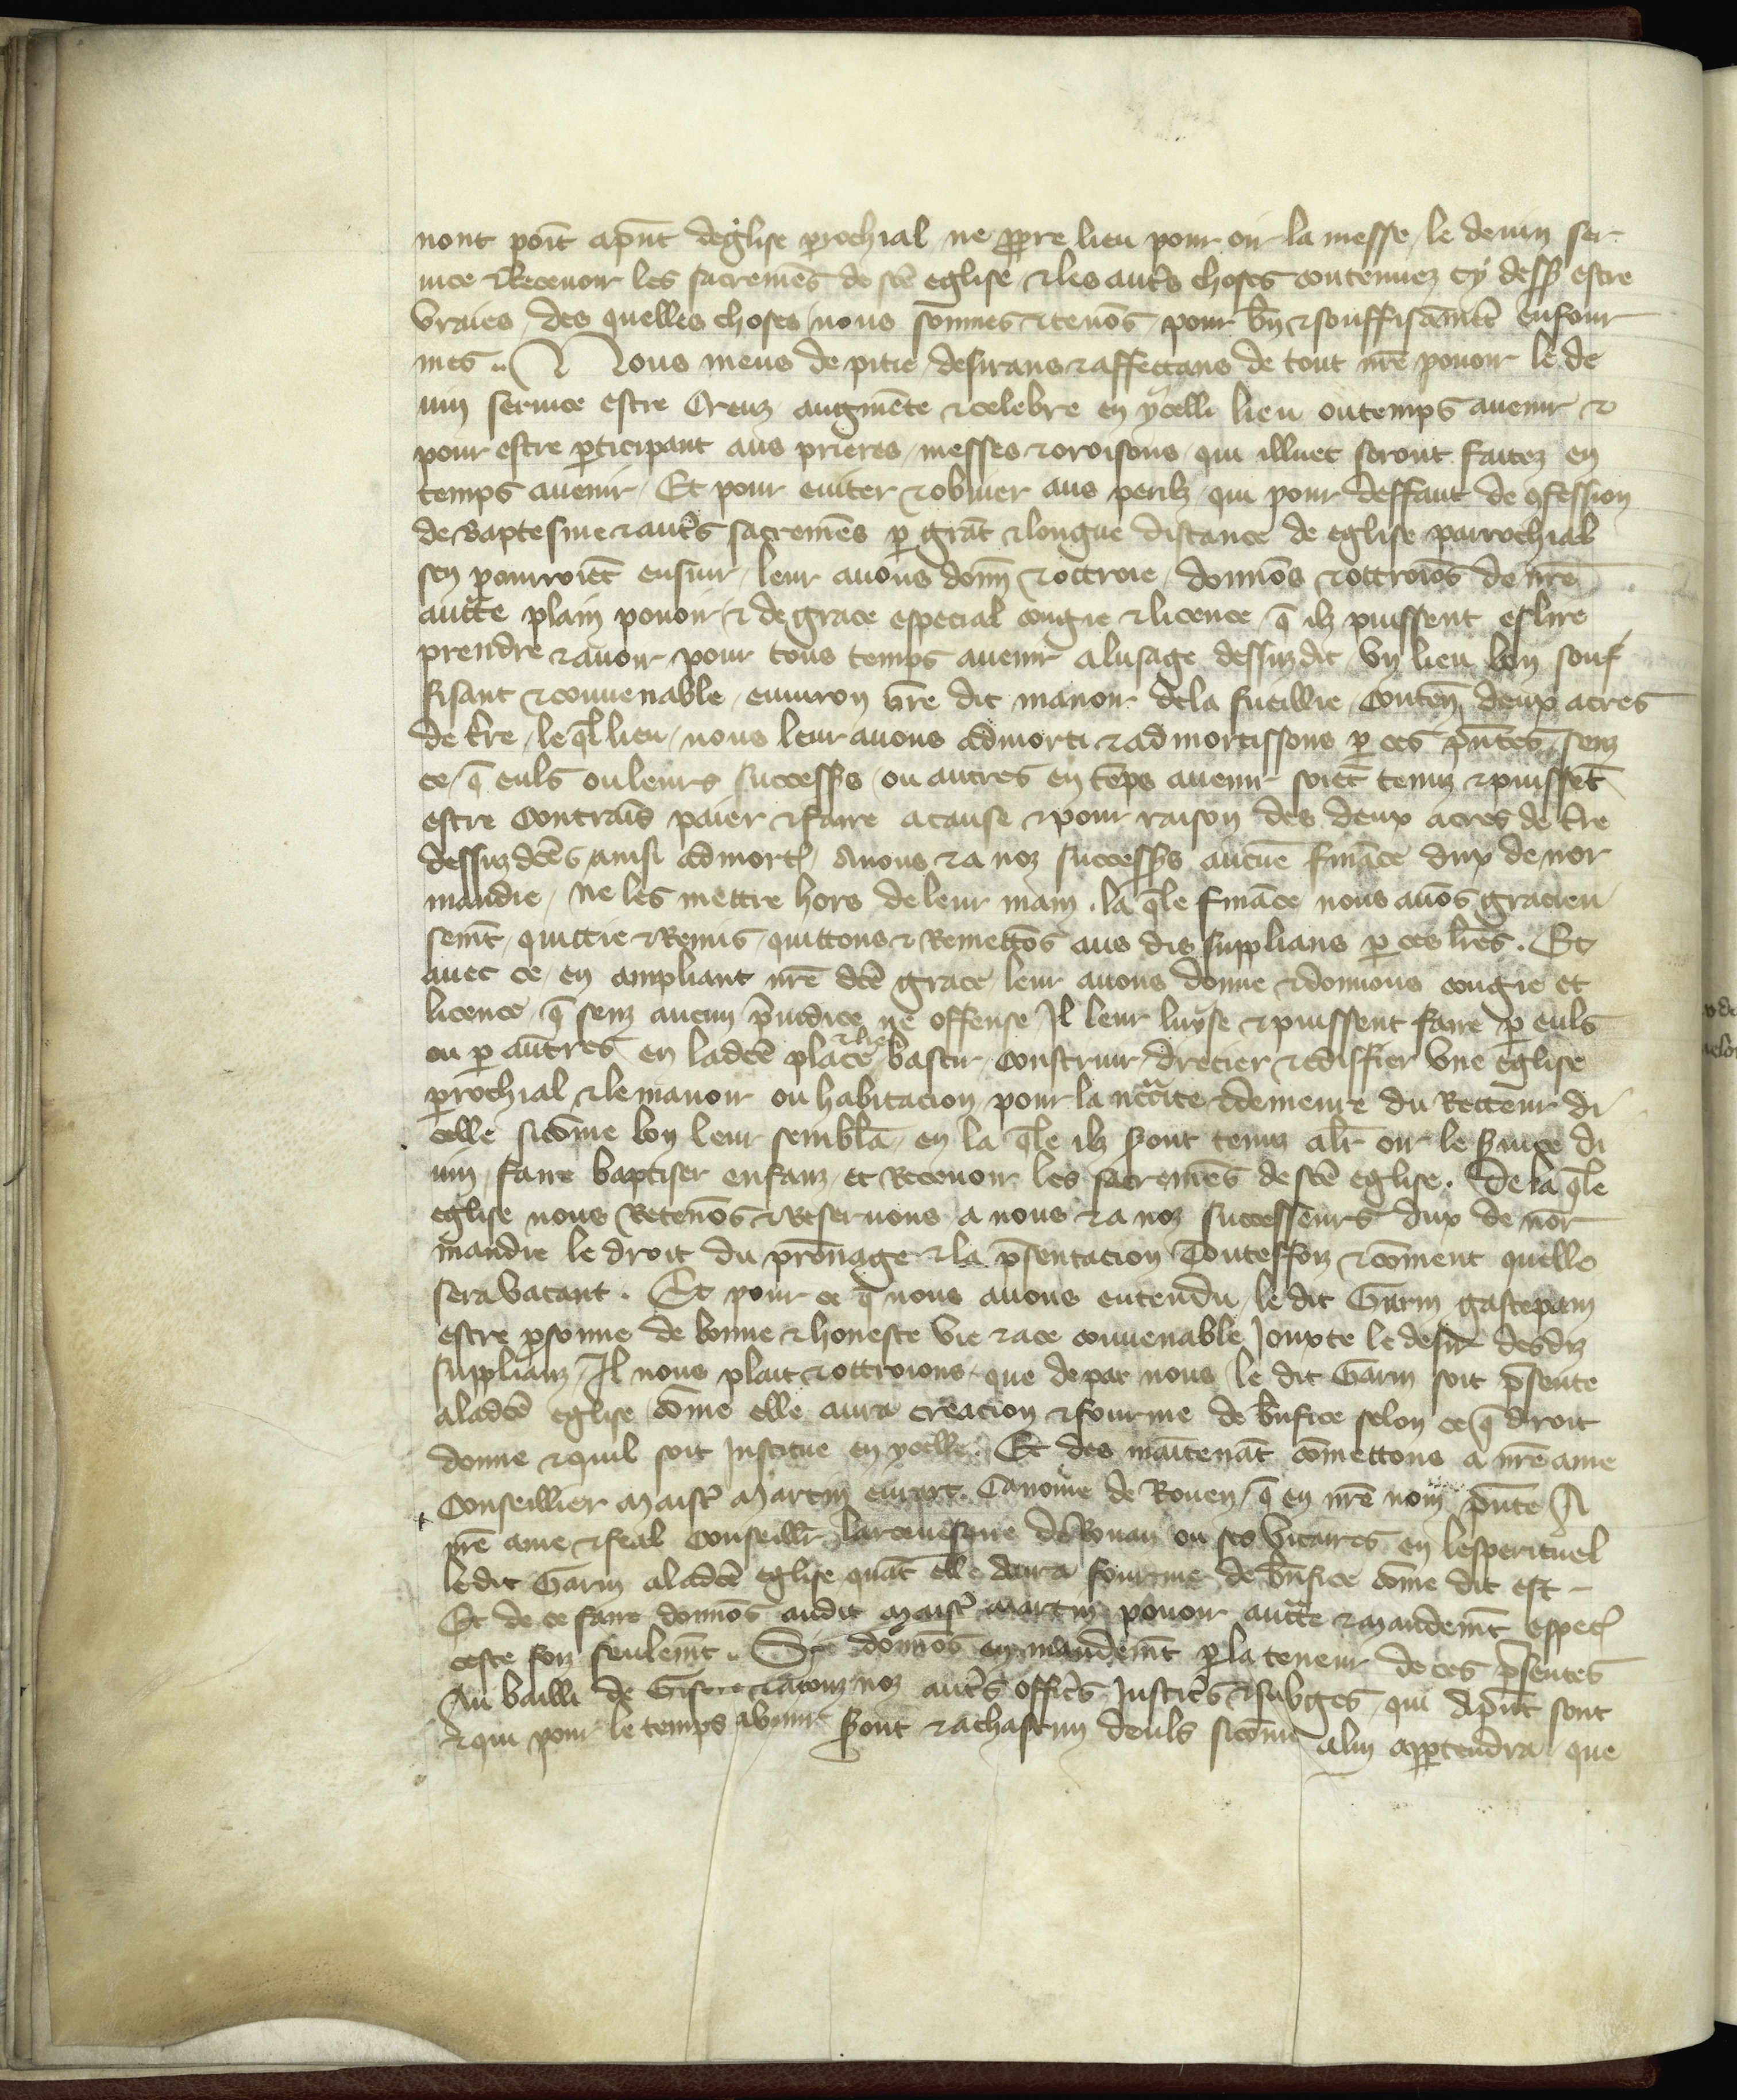 nont point ap̄nt deglise p̱rochial ne ꝓpre lieu pour oir la messe le deuin ser
uice ⁊ Receuoir les sacremēs de sc̄e eglise ⁊ les aut̄s choses contenuez cy dess̱ estre
vraies des quelles choses nous sommes ⁊ tenōs pour bn̄ ⁊ souffisāmēt enfour
mes .. Nous meus de pitie desirans ⁊ affectans de tout nr̄e pouoir le de
uin seruice estre creuz augmēte ⁊ celebre en ycelli lieu ou temps auenir ⁊
pour estre ꝑticipant aus prieres messes ⁊ oroisons qui illuec seront faitez en
temps auenir Et pour euiter ⁊ obuier aus perilz qui pour deffaut de ꝯfession
de Baptesme ⁊ aut̄s sacremēs ꝑ grāt ⁊ longue distance de eglise parrochial
sen pourroiēt ensuir leur auons donn̄ ⁊ ottroie donnōs ⁊ ottroiōs de nr̄e
auct̄te plain pouoir ⁊ de grace especial congie ⁊ licence q̄ ilz puissent eslire
prendre ⁊ auoir pour tous temps auenir a lusage dessuzdit vn lieu bon souf
fisant ⁊ conuenable enuiron nr̄e dit manoir de la fueillie conten̄ deux acres
de t̄re le q̄l lieu nous leur auons admorti ⁊ admortissons ꝑ ces p̄ntes senz
ce q̄ euls ou leurs success̄s ou autres en tēps auenir soiēt tenuz ⁊ puissēt
estre contrains paier ⁊ faire a cause ⁊ pour raison des deux acres de t̄re
dessuzdc̄es ainsi admort̄ A nous ⁊ a noz success̄s aucūe fināce dux de nor
mandie ne les mettre hors de leur main . la q̄le fināce nous auōs gracieu
semt̄ quittie ⁊ Remis quittons ⁊ Remettōs aus dis supplians ꝑ ces lr̄es . Et
auec ce en ampliant nr̄e dc̄e grace leur auons donne ⁊ donnons congie et
licence q̄ senz aucun p̄iudice ne offense Il leur luyse ⁊ puissent faire ꝑ euls
ou ꝑ autres en ladc̄e place ⁊ lieu bastir construir drecier ⁊ ediffier vne eglise
ꝑrochial ⁊ le manoir ou habitacion pour la nc̄cite ⁊ demeure du Recteur di
celle sicōme bon leur semblā en la q̄le ilz s̄ont tenuz alr̄ oir le s̄uice di
uin faire baptiser enfanz et Receuoir les sacremēs de sc̄e eglise . De la q̄le
eglise nous Retenōs ⁊ Reseruons a nous ⁊ a noz successeurs dux de nor
mandie le droit du pr̄onage ⁊ la p̄sentacion Toutesfoiz ⁊ cōment quelle
sera vacant . Et pour ce q̄ nous auons entendu le dit Garin gastepain
estre ꝑsonne de bonne ⁊ honeste vie ⁊ a ce conuenable Jouxte le desir desdiz
supplianz Il nous plait ⁊ ottroions que de par nous le dit Garin soit p̄sente
a ladc̄e eglise cōme elle aura creacion ⁊ fourme de bn̄fice selon ce q̄ droit
donne ⁊ quil soit Institue en ycelle . Et des maītenāt cōmettons a nr̄e ame
Conseillier Maist̄ Martin Canoine de Rouen q̄ en nr̄e nom p̄nte A
nr̄e ame ⁊ feal conseillr̄ larceuesque de Rouan ou ses vicaires en lesperituel
ledit Garin a ladc̄e eglise quāt elle aura fourme de bn̄fice cōme dit est
Et de ce faire donnōs audit Maist̄ Martin pouoir auct̄te ⁊ mandemt̄ espec̄l
ceste foiz seulemt̄ .. Sy donnōs en mandemt̄ ꝑ la teneur de ces p̄sentes
Au bailli de Gisors ⁊ a touz noz aut̄s offic̄s Justic̄s ⁊ subges qui ap̄nt sont
⁊ qui pour le temps auenir s̄ont ⁊ a chascun deuls sicōme a lui apꝑtendra que